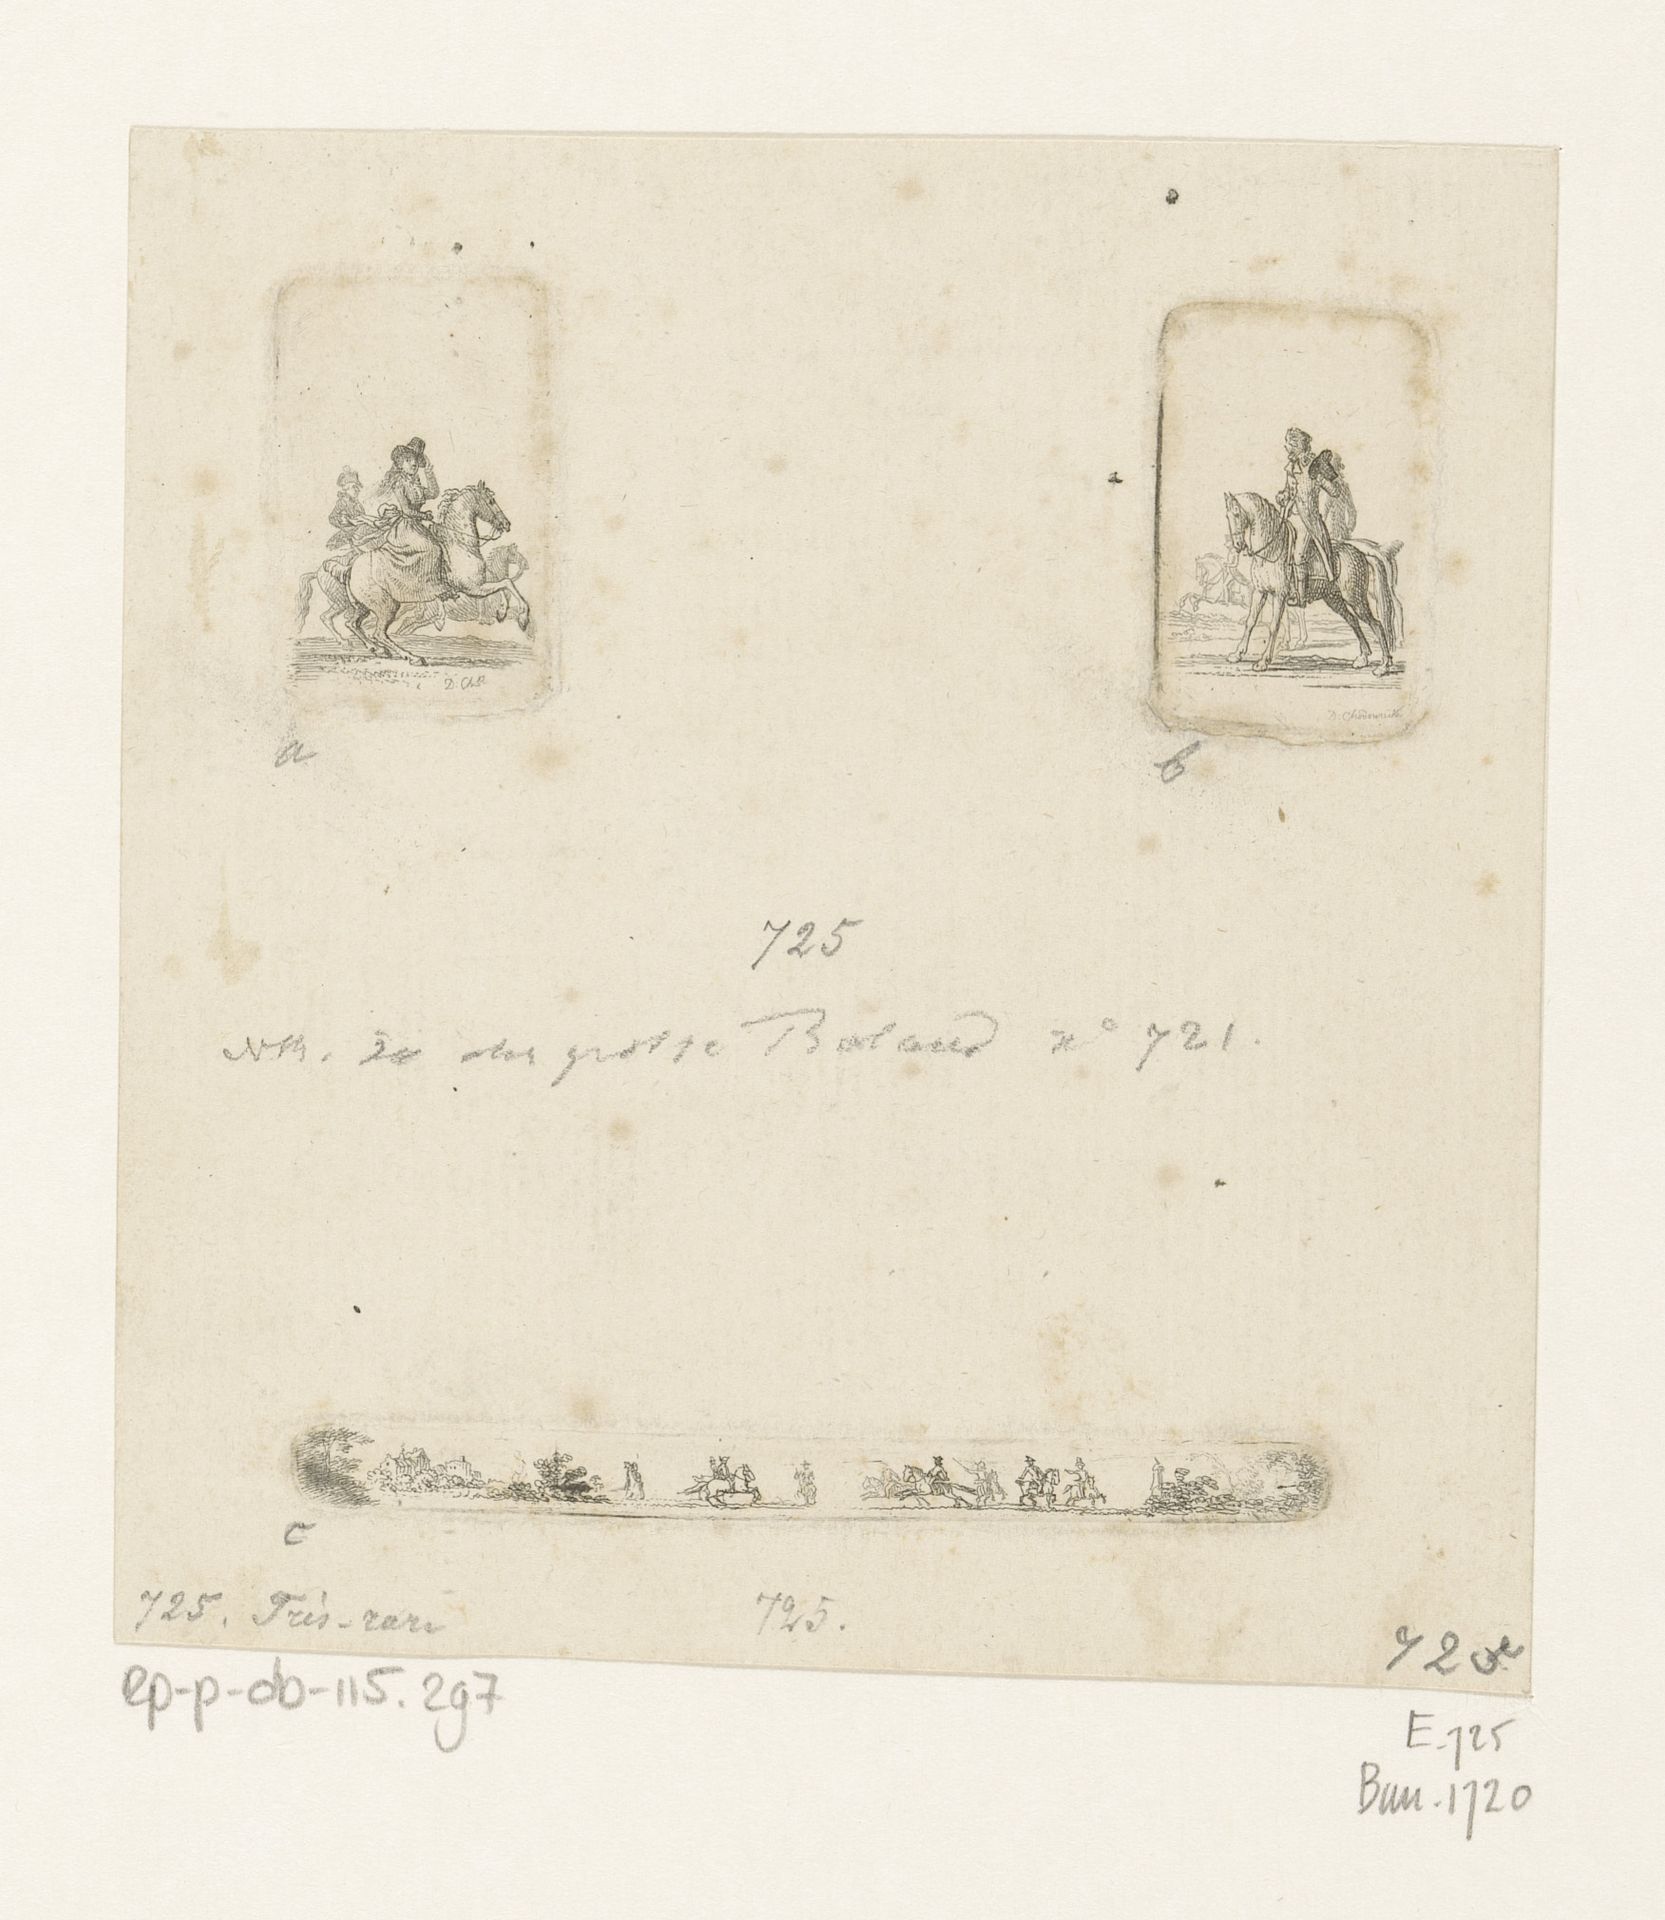 D: Ch
D: Chodowiecki
a
b
725
NB. grosse nº 721.
c
725. Très-rare
725.
725
rp-p-ob-115.297
E.725
Bau.1720